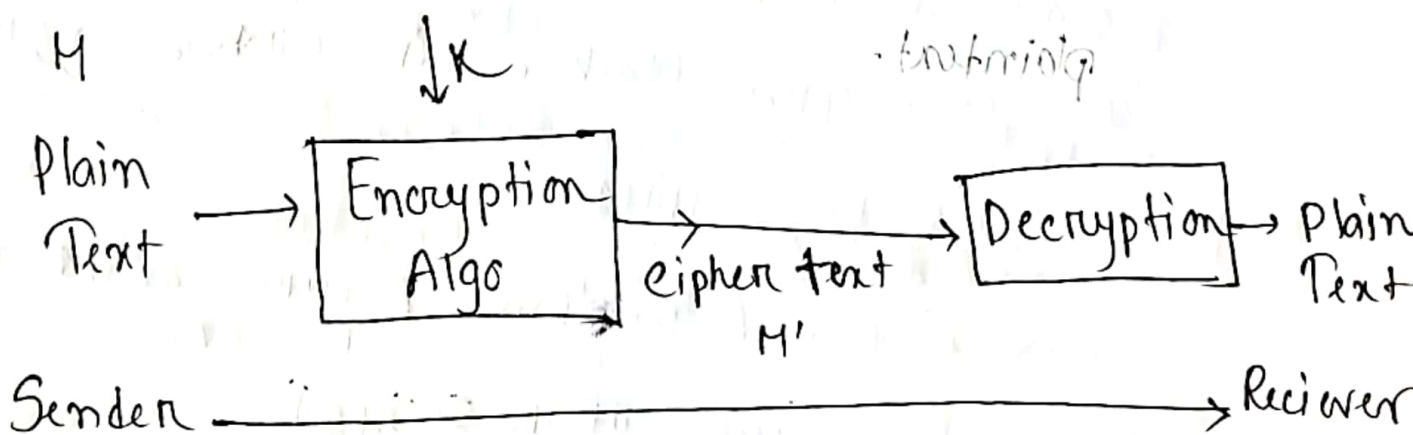 M
K
Plain
Text
Encryption
Algo
cipher text
M'
Decryption
Plain
Text
Sender
Reciever